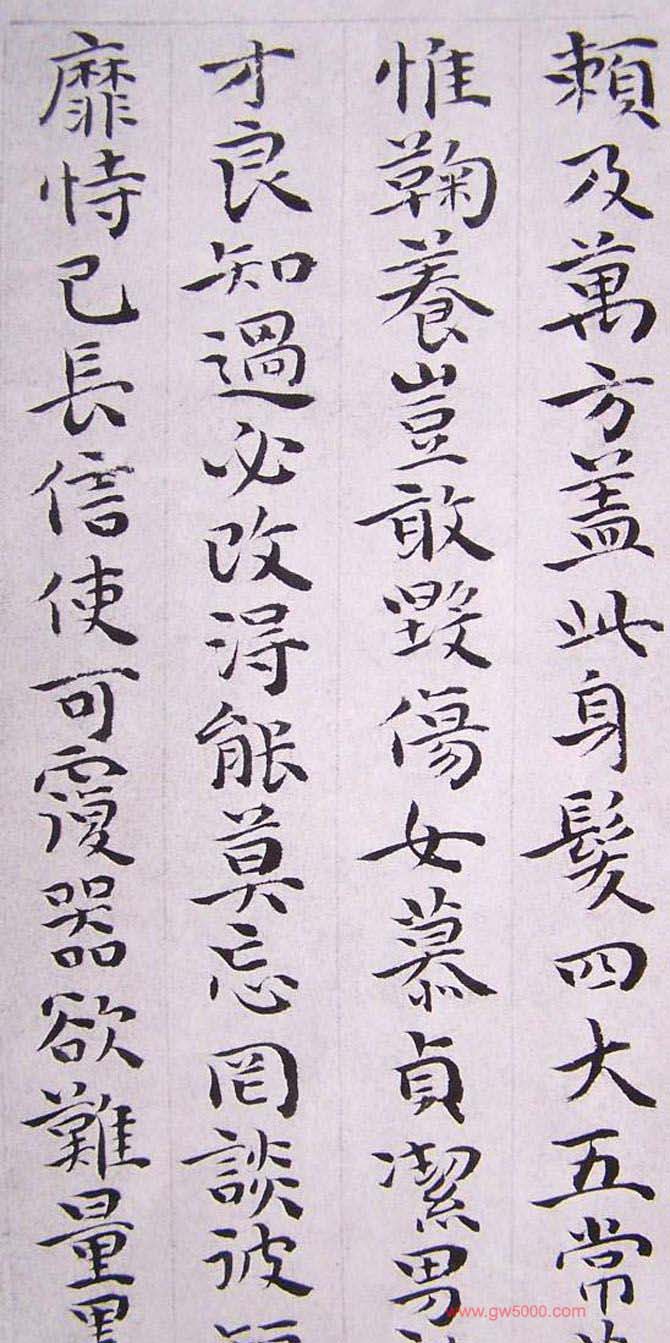 賴及萬方蓋此身髮四大五常
惟鞠養豈敢毀傷女慕貞潔男
才良知過必改得能莫忘罔談彼
靡恃己長信使可覆器欲難量
www.gw5000.com